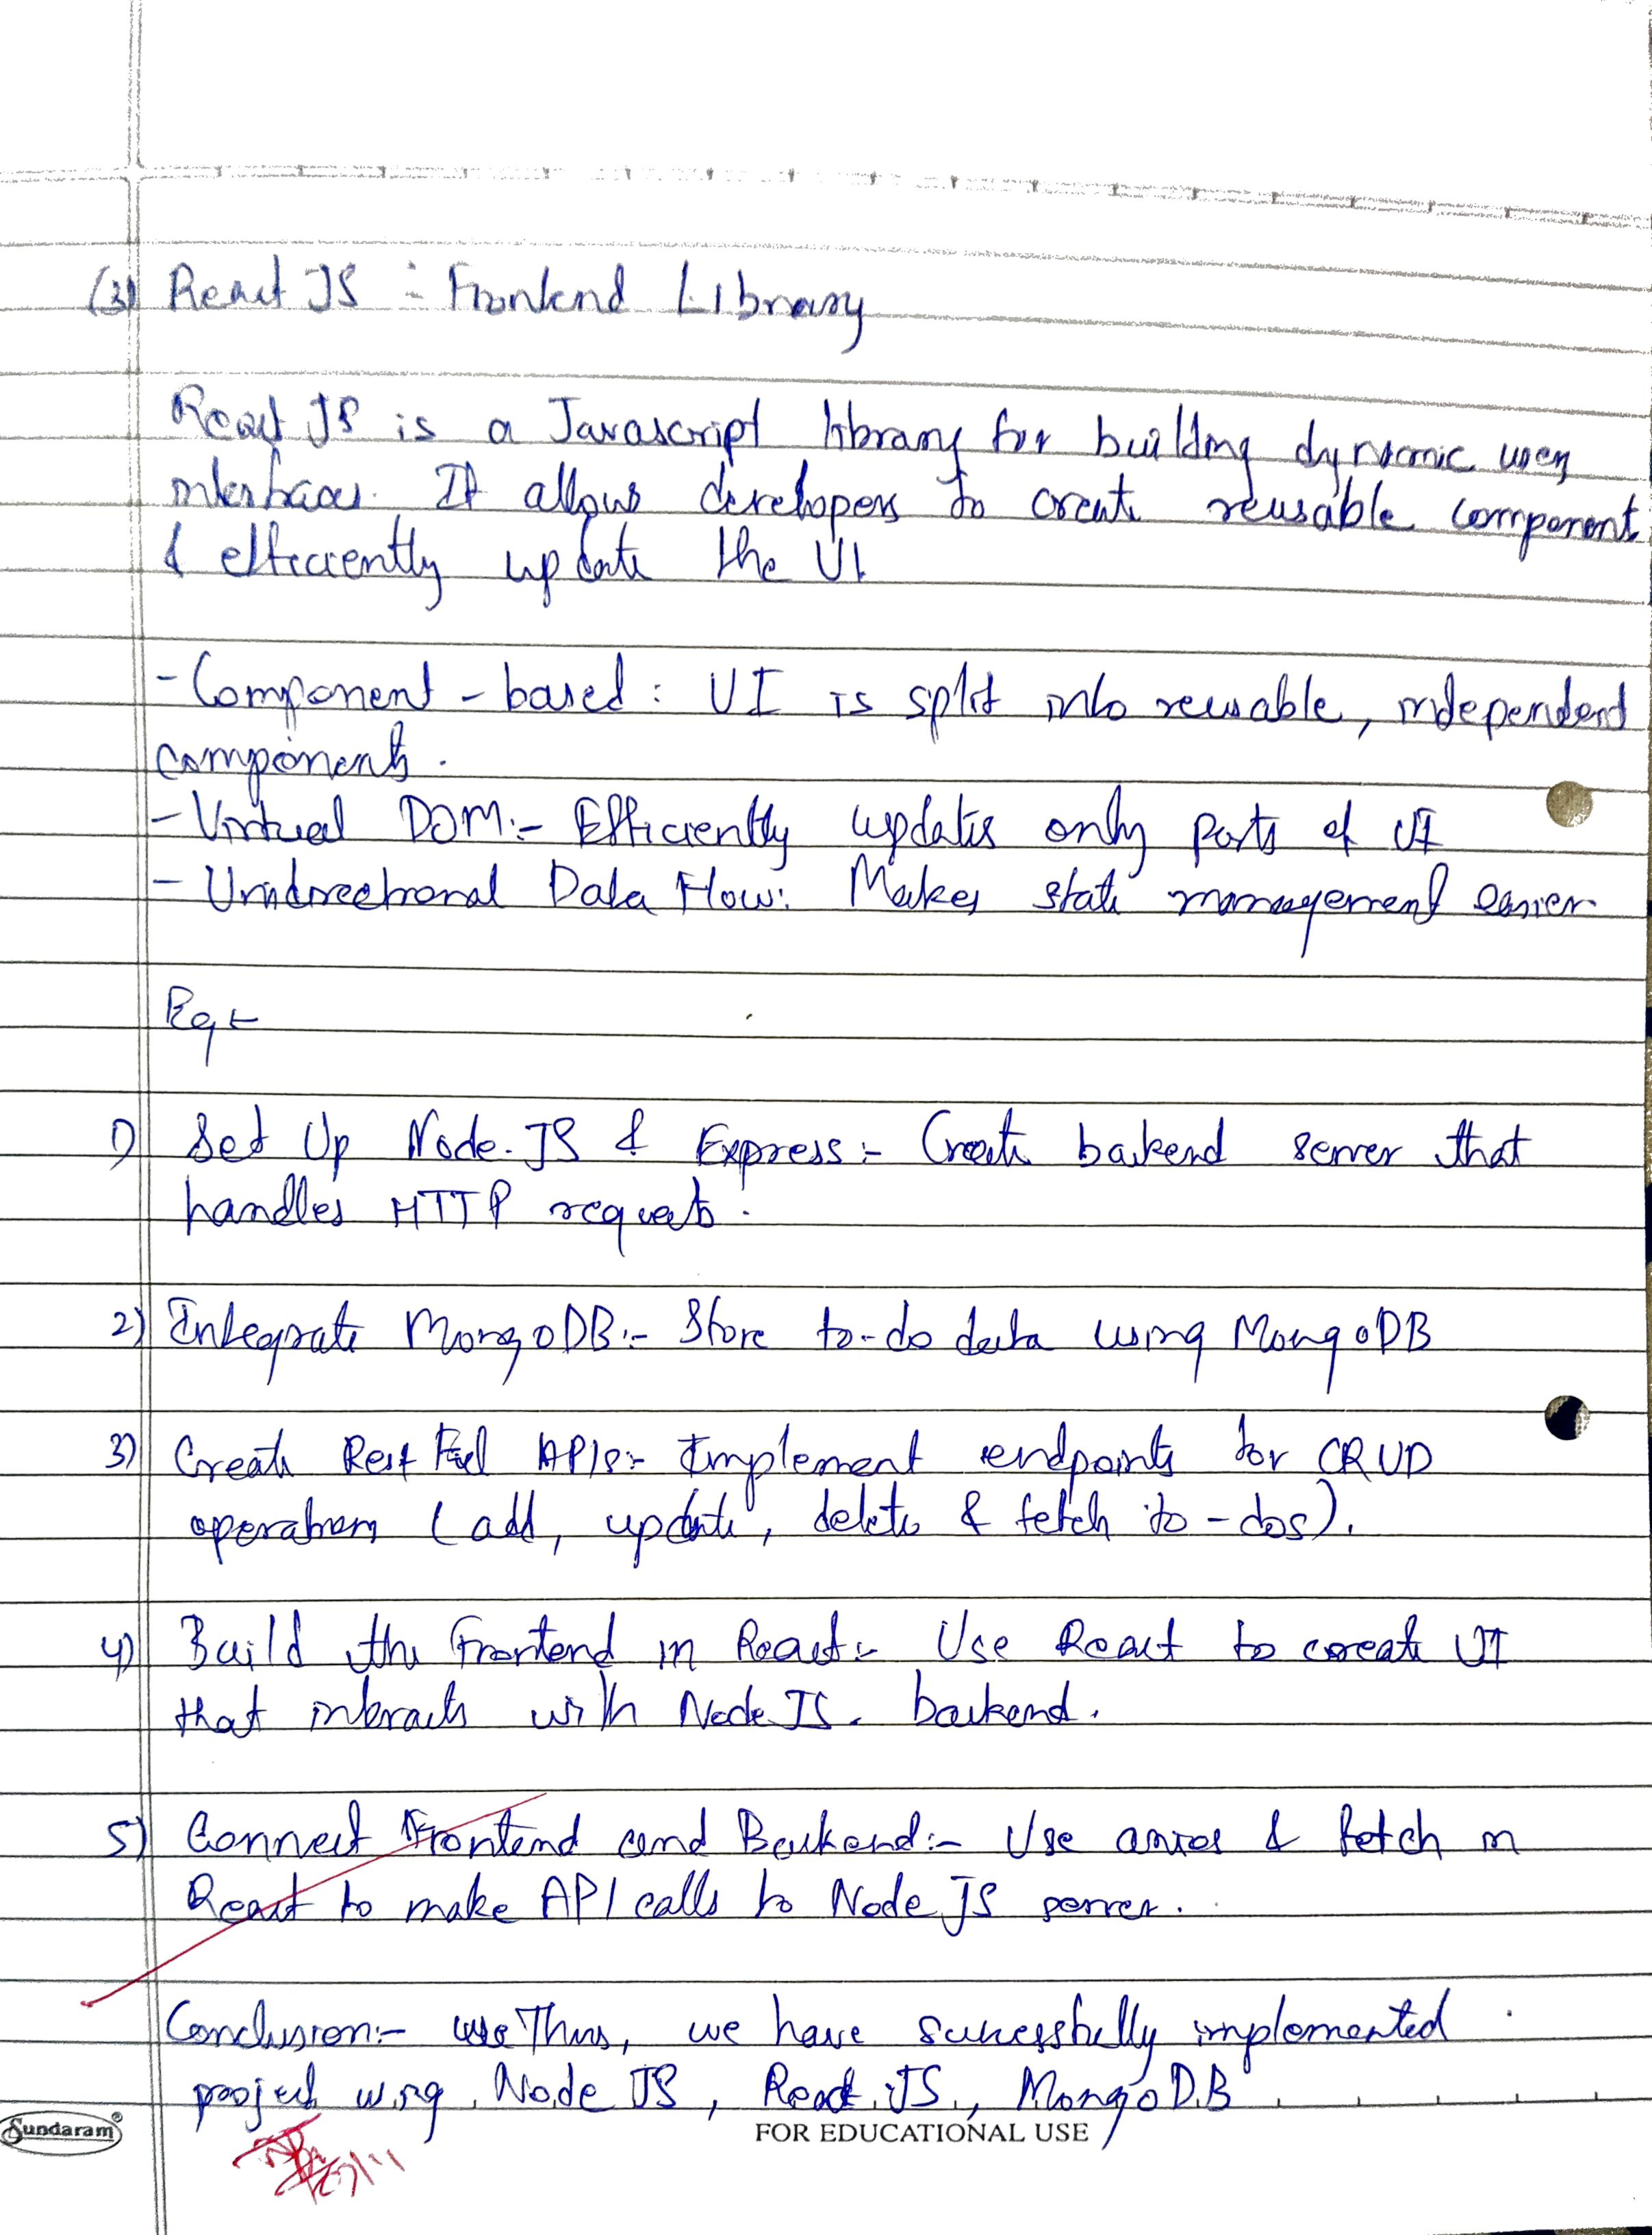 (3) React JS :- Frontend Library
React JS is a Javascript library for building dynamic user
interfaces. It allows developers to create reusable component
& efficiently update the UI
- Component - based : UI is split into reusable, independent
components.
- Virtual DOM:- Efficiently updates only parts of UI
- Unidirectional Data Flow: Makes state management easier
Eg:-
1) Set Up Node.JS & Express :- Create backend server that
handles HTTP requests.
2) Integrate MongoDB:- Store to-do data using MongoDB
3) Create Rest Ful APIs:- Implement endpoints for CRUD
operations (add, update, delete & fetch to-dos).
4) Build the Frontend in React:- Use React to create UI
that interacts with Node JS. backend.
5) Connect Frontend and Backend:- Use axios & fetch in
React to make API calls to Node JS server.
Conclusion:- Thus, we have successfully implemented
project using Node JS, React JS, MongoDB
Sundaram®
FOR EDUCATIONAL USE